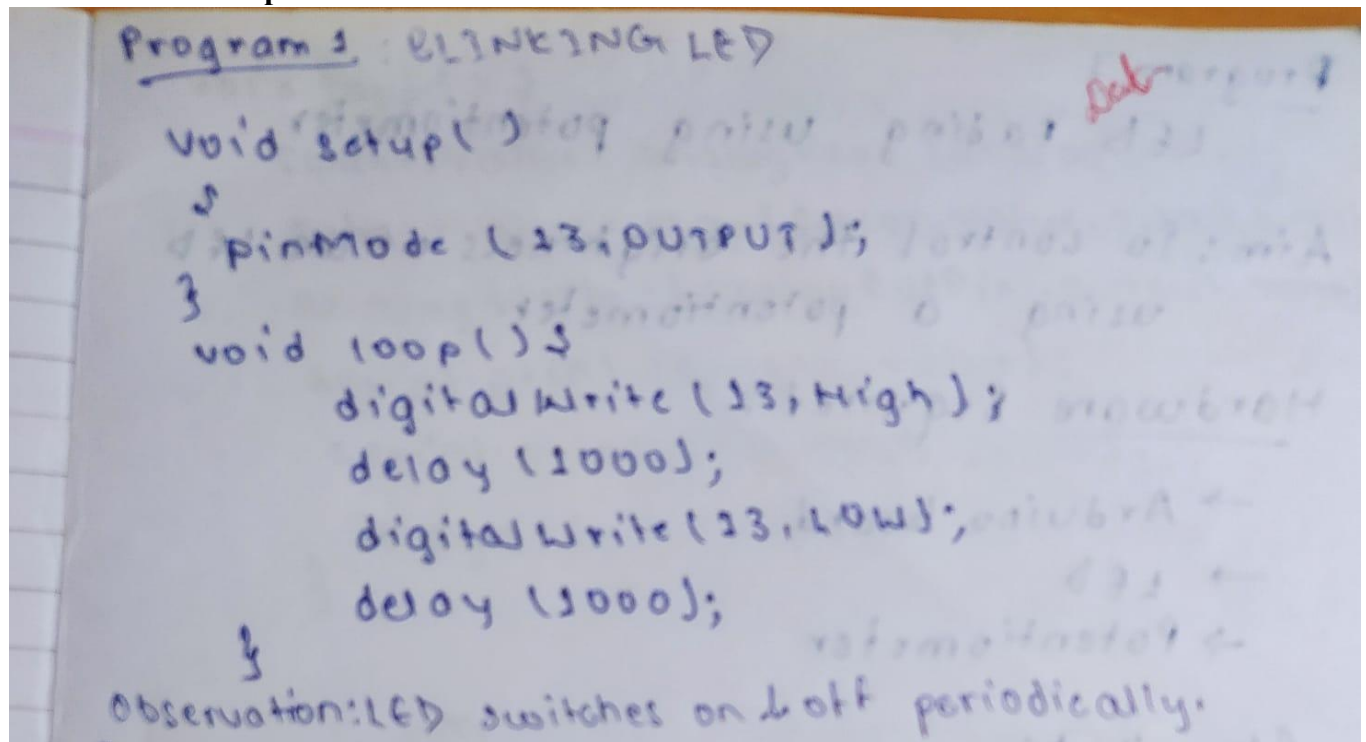 Program 1 BLINKING LED
void setup()
{
pinMode (13, OUTPUT);
}
void loop() {
digitalWrite (13, High);
delay (1000);
digitalWrite (13, LOW);
delay (1000);
}
Observation: LED switches on & off periodically.